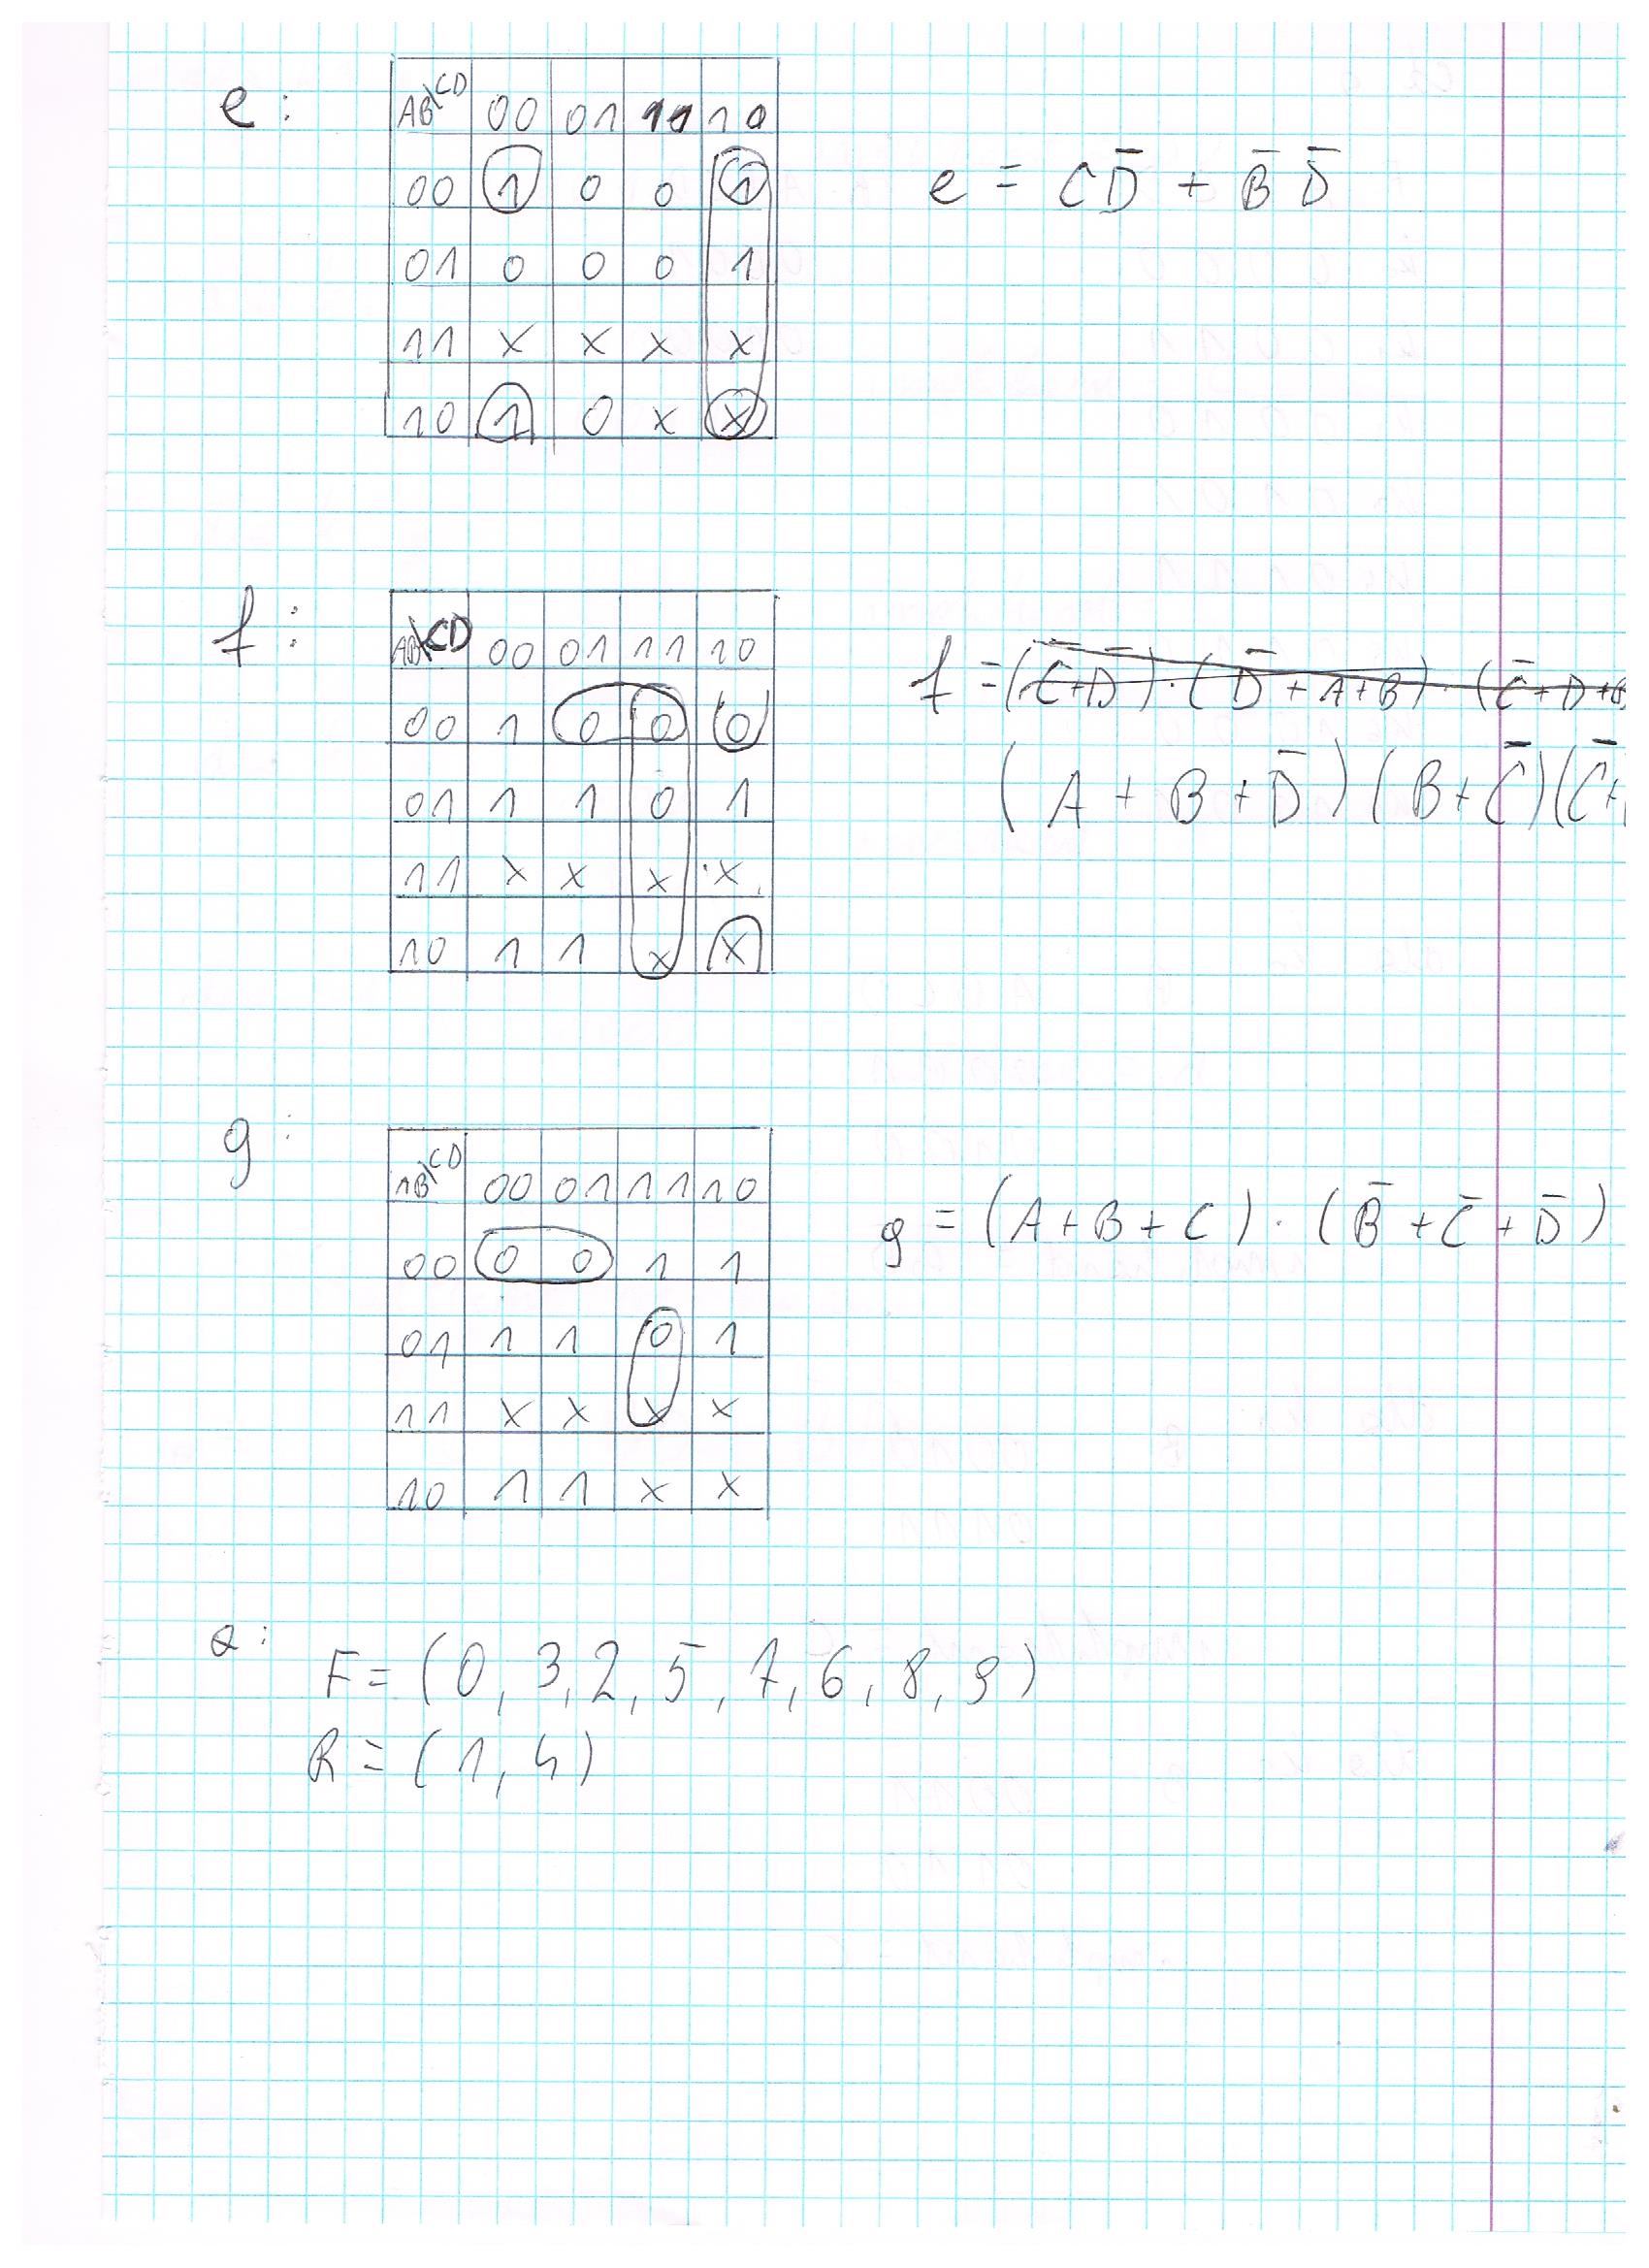 e:
AB\CD 00 01 11 10
00 1 0 0 1
01 0 0 0 1
11 x x x x
10 1 0 x x
e = CD̅ + B̅ D̅
f:
AB\CD 00 01 11 10
00 1 0 0 0
01 1 1 0 1
11 x x x x
10 1 1 x x
f = (C̅+D̅)·(D̅+A+B)·(C̅+D+B
(A + B + D̅)(B+C̅)(C̅+
g:
AB\CD 00 01 11 10
00 0 0 1 1
01 1 1 0 1
11 x x x x
10 1 1 x x
g = (A+B+C)·(B̅+C̅+D̅)
a:
F = (0, 3, 2, 5, 7, 6, 8, 9)
R = (1, 4)